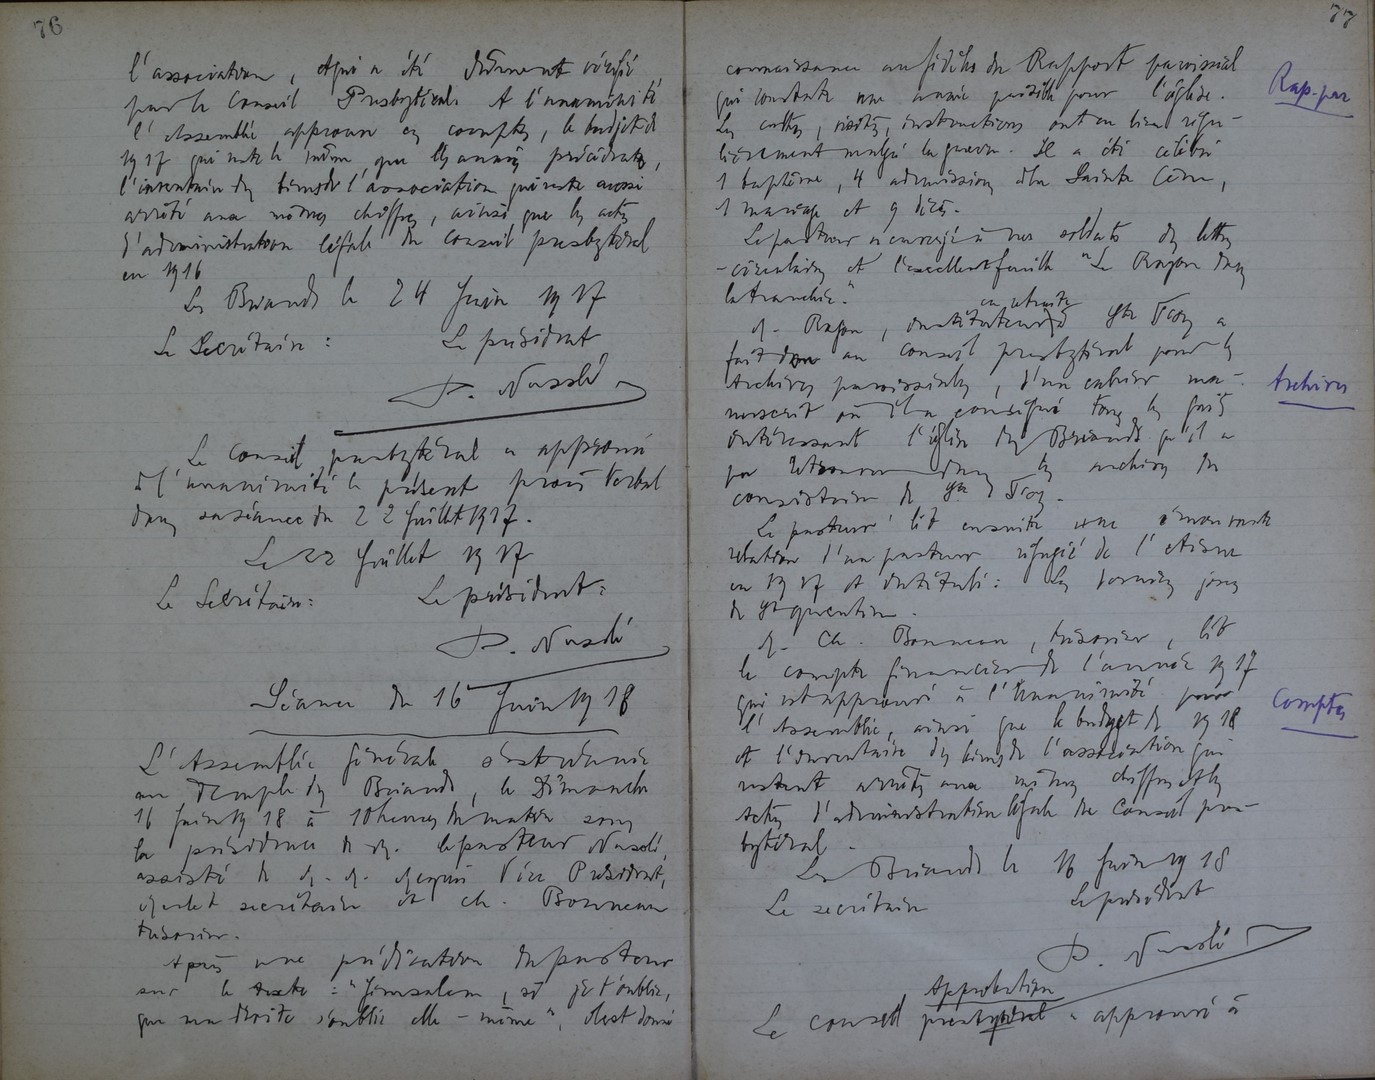 76
l'association, et qui a été dûment vérifié
par le Conseil Presbytéral. A l'unanimité
l'Assemblée approuve ces comptes, le budget de
1917 qui reste le même que les années précédentes,
l'inventaire des biens de l'association qui reste aussi
arrêté aux mêmes chiffres, ainsi que les actes
d'administration légale du conseil presbytéral
en 1916
Les Briands le 24 Juin 1917
Le Secrétaire : Le président
D. Nusslé
Le Conseil presbytéral a approuvé
à l'unanimité le présent procès Verbal
dans sa séance du 22 Juillet 1917.
Le 22 Juillet 1917
Le Secrétaire : Le président :
D. Nusslé
Séance du 16 Juin 1918
L'Assemblée Générale s'est réunie
au Temple des Briands, le Dimanche
16 Juin 1918 à 10 heures du matin sous
la présidence de M. le pasteur Nusslé,
assisté de M. M. Vice Président,
secrétaire et Ch. Bonneau
trésorier.
Après une prédication du pasteur
sur le texte : "Jérusalem, si je t'oublie,
que ma droite s'oublie elle-même", il est donné
77
connaissance aux fidèles du Rapport paroissial
qui constate une année paisible pour l'église.
Les cultes, visites, instructions ont eu lieu régu-
lièrement malgré la guerre. Il a été célébré
1 baptême, 4 admissions à la Sainte Cène,
1 mariage et 9 décès.
Le pasteur a envoyé à nos soldats des lettres
-circulaires et l'excellente feuille "Le Rayon dans
la tranchée."
M. Rayon, instituteur en retraite à Ste Foy a
fait don au conseil presbytéral pour les
Archives paroissiales, d'un cahier ma-
nuscrit où il a consigné tous les faits
intéressant l'église des Briands qu'il a
pu retrouver dans les archives du
consistoire de Ste Foy.
Le pasteur lit ensuite une émouvante
relation d'un pasteur réfugié de l'Aisne
en 1917 et intitulé : Les derniers jours
de St Quentin.
M. Ch. Bonneau, trésorier, lit
le compte financier de l'année 1917
qui est approuvé à l'unanimité par
l'Assemblée, ainsi que le budget de 1918
et l'inventaire des biens de l'association qui
restent arrêtés aux mêmes chiffres et les
actes d'administration légale du Conseil pres-
bytéral.
Les Briands le 16 Juin 1918
Le secrétaire Le président
D. Nusslé
Approbation
Le conseil presbytéral a approuvé à
Rap. par
Archives
Comptes